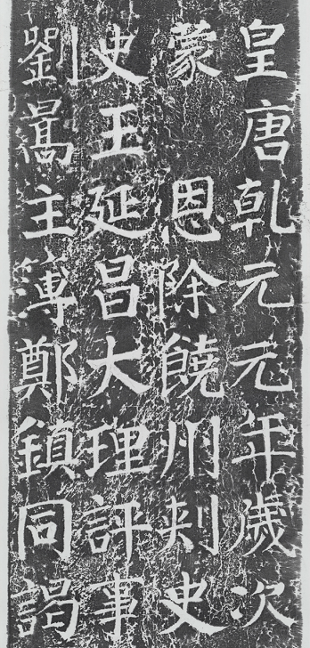 皇唐乾元元年歲次
蒙 恩除饒州刺史
史王延昌大理評事
劉暠主簿鄭鎮同謁